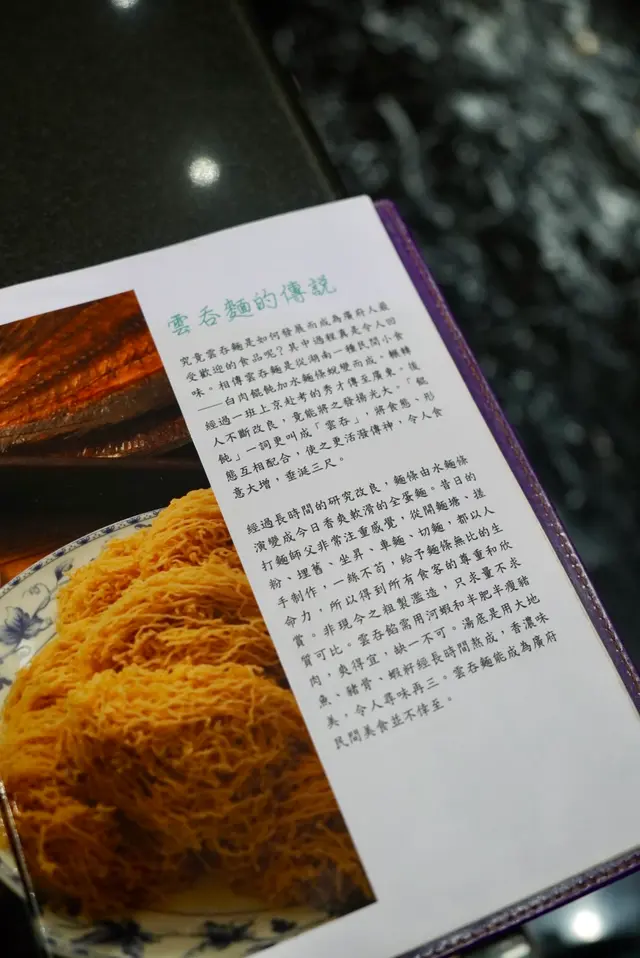 雲吞麵的傳說
究竟雲吞麵是如何發展而成為廣府人最
受歡迎的食品呢?其中過程真是令人回
味。相傳雲吞麵是從湖南一種民間小食
——白肉餛飩加水麵條蛻變而成。輾轉
經過一班上京赴考的秀才傳至廣東,後
人不斷改良,竟能將之發揚光大。「餛
飩」一詞更叫成「雲吞」,將食態、形
態互相配合,使之更活潑傳神,令人食
意大增,垂涎三尺。
經過長時間的研究改良,麵條由水麵條
演變成今日香爽軟滑的全蛋麵。昔日的
打麵師父非常注重感覺,從開麵塘、搓
粉、埋舊、坐昇、車麵、切麵,都以人
手制作,一絲不茍,給予麵條無比的生
命力,所以得到所有食客的尊重和欣
賞。非現今之粗製濫造,只求量不求
質可比。雲吞餡需用河蝦和半肥半瘦豬
肉,爽得宜,缺一不可。湯底是用大地
魚、豬骨、蝦籽經長時間熬成,香濃味
美,令人尋味再三。雲吞麵能成為廣府
民間美食並不倖至。